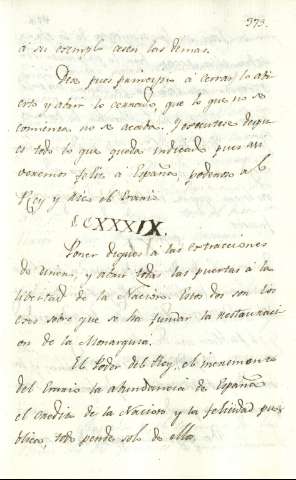 373.
á su exemplo cesen las demas.
Dese pues principio á cerrar lo abi
erto y abrir lo cerrado, que lo que no se
comienza no se acaba. Executese despu
es todo lo que queda indicado pues asi
veremos feliz á España, poderoso al
Rey y rico el Erario.
CCXXXIX.
Poner diques á las extracciones
de Yndias, y abrir todas las puertas á la
libertad de la Nacion. Estos dos son los
exes sobre que se ha fundar la restauraci
on de la Monarquia.
El Poder del Rey, el incremento
del Erario la abundancia de España
el credito de la Nacion y la felicidad pu
blica, todo pende solo de ello.